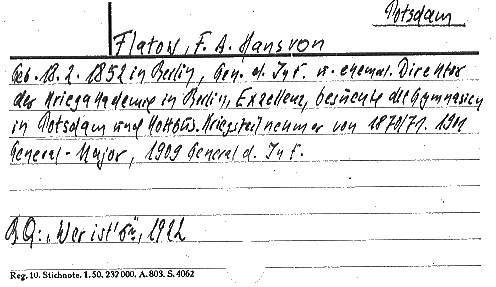 Potsdam
Flatow, F. A. Hans von
Geb. 18. 2. 1852 in Berlin, Gen. d. Inf. u. ehemal. Direktor
der Kriegsakademie in Berlin, Exzellenz, besuchte die Gymnasien
in Potsdam und Kottbus. Kriegsteilnehmer von 1870/71. 1901
General-Major, 1909 General d. Inf.
B Q: „Wer ist's", 1922
Reg. 10. Stichnote. 1. 50. 232000. A. 803. S. 4062